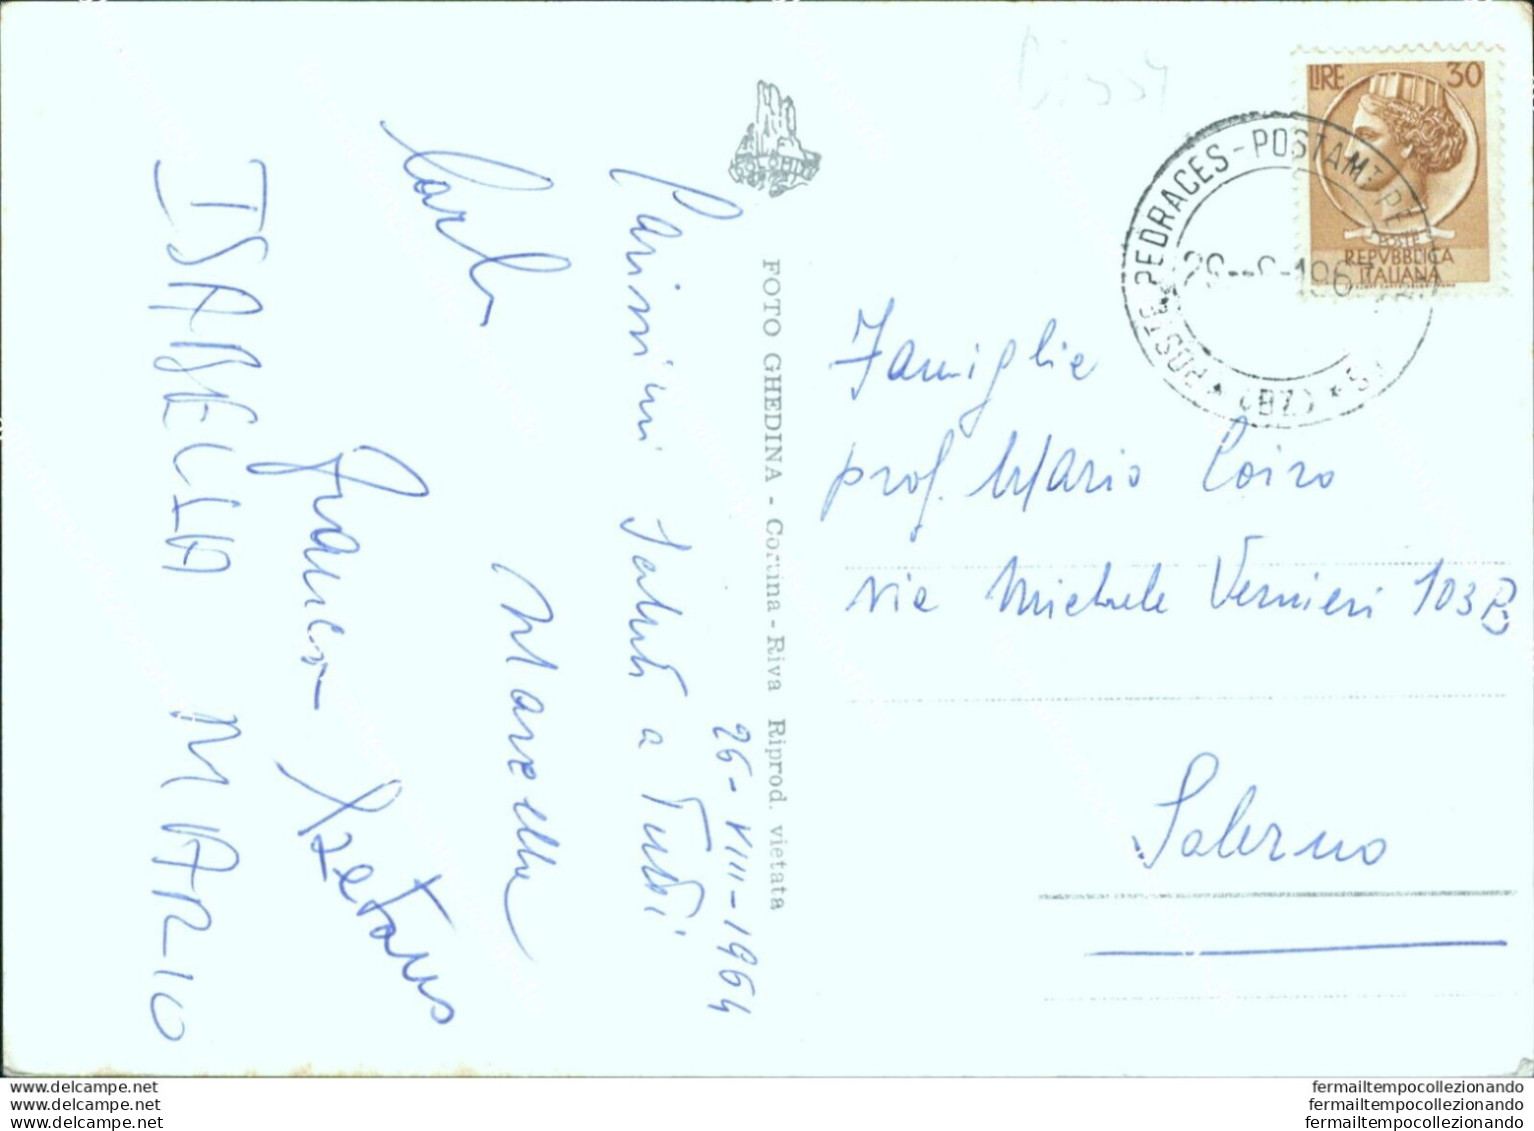 26-VIII-1964
Carissimi saluti a Tutti
Marcella
Carlo
Franco Gaetano
ISABELLA MARIO
FOTO GHEDINA - Cortina - Riva Riprod. vietata
LIRE 30
POSTE
REPVBBLICA
ITALIANA
POSTE PEDRACES - POSTAMT PE
(BZ)
Famiglia
prof. Mario Coiro
via Michele Vernieri 103 B
Salerno
www.delcampe.net
www.delcampe.net
www.delcampe.net
fermailtempocollezionando
fermailtempocollezionando
fermailtempocollezionando